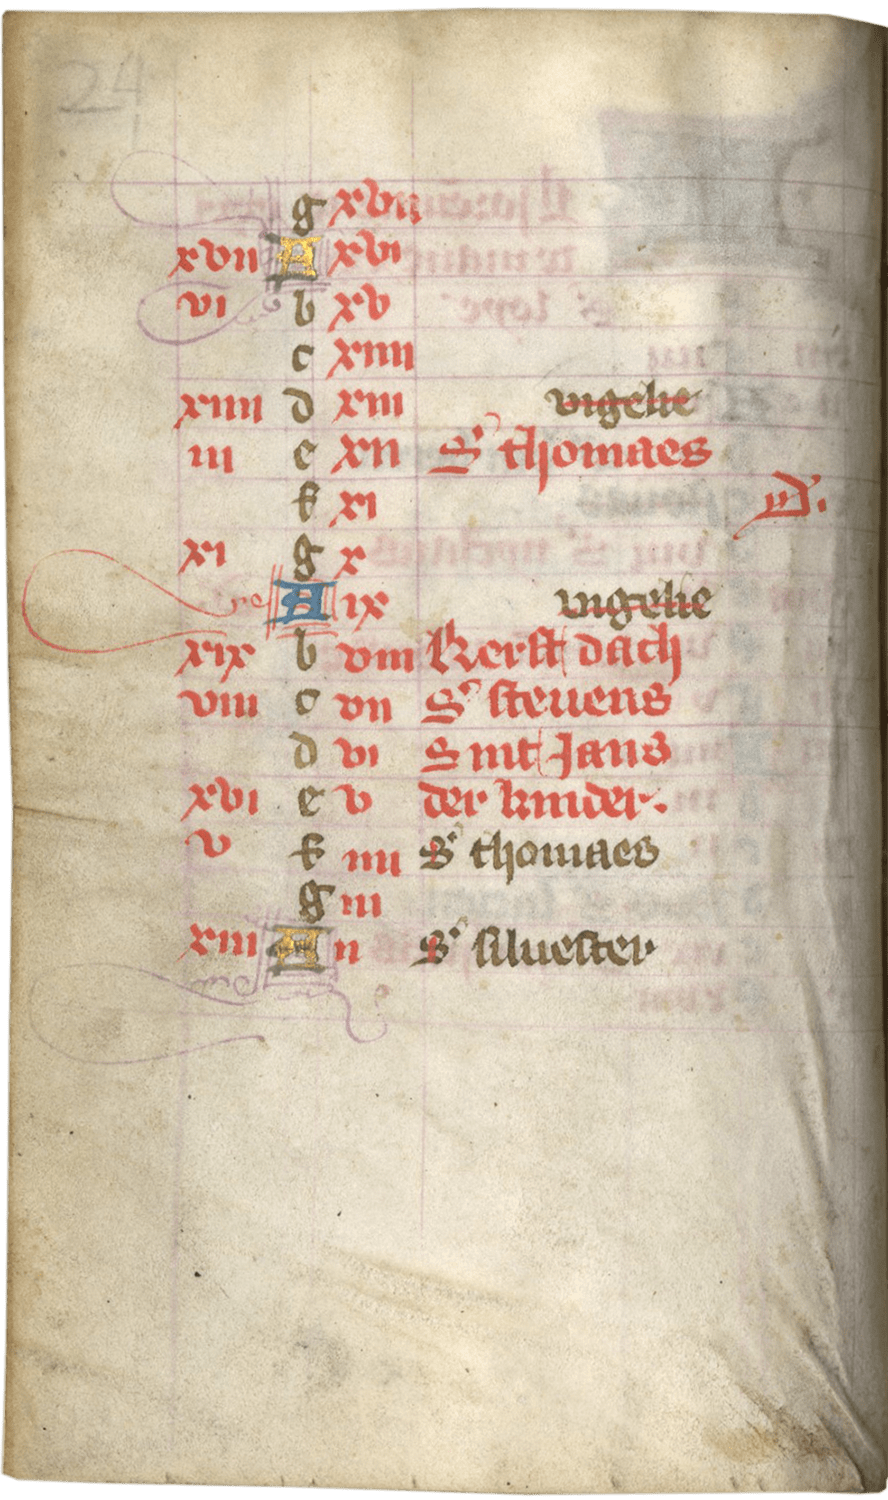 24
g xvii
xvii A xvi
vi b xv
c xiiii
xiiii d xiii vigelie
iii e xii S' thomaes
f xi
xi g x
A ix vigelie
xix b viii Kerst dach
viii c vii S' steuens
d vi Sint Jans
xvi e v der kinder.
v f iiii S' thomaes
g iii
xiii A ii S' siluester